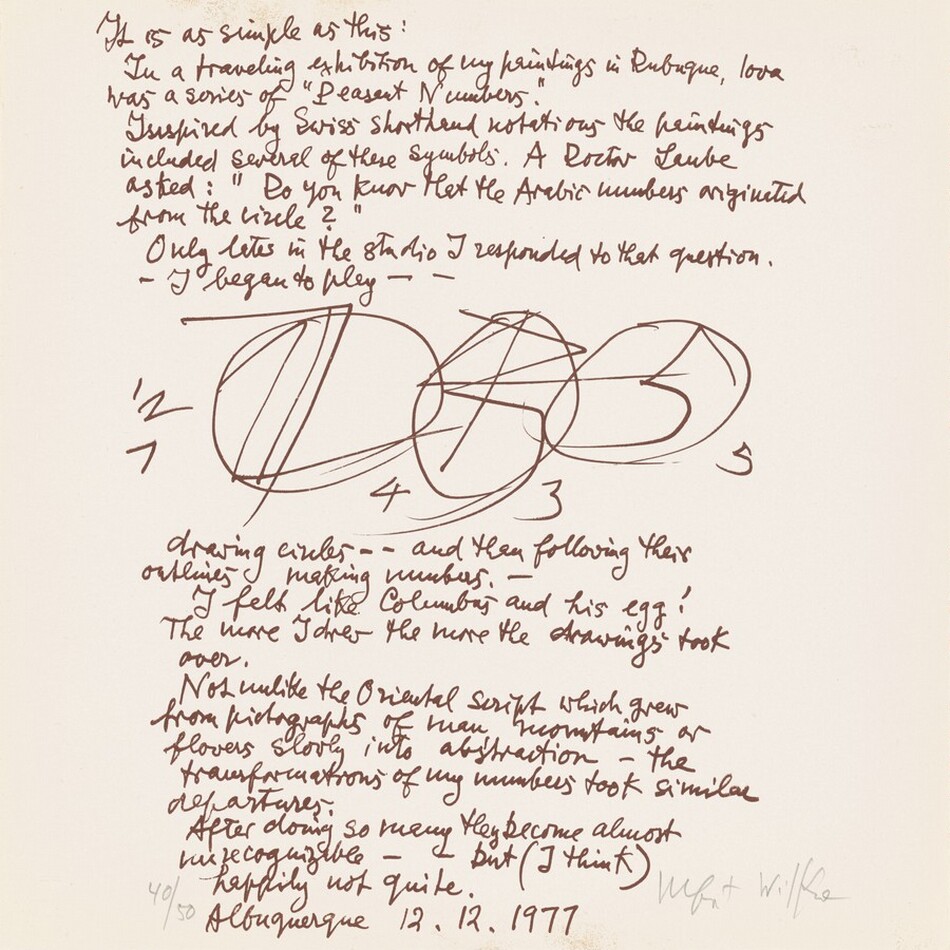 It is as simple as this:
In a traveling exhibition of my paintings in Dubuque, Iowa
was a series of "Peasant Numbers."
Inspired by Swiss shorthand notations the paintings
included several of these symbols. A Doctor Laube
asked: " Do you know that the Arabic numbers originated
from the circle ? "
Only later in the studio I responded to that question.
- I began to play — —
1 2
7
4
3
5
drawing circles -- and then following their
outlines making numbers. —
I felt like Columbus and his egg!
The more I drew the more the drawings took
over.
Not unlike the Oriental script which grew
from pictographs of man, mountains or
flowers slowly into abstraction - the
transformations of my numbers took similar
departures.
After doing so many they become almost
unrecognizable — - but (I think)
happily not quite.
40/50
Albuquerque 12. 12. 1977